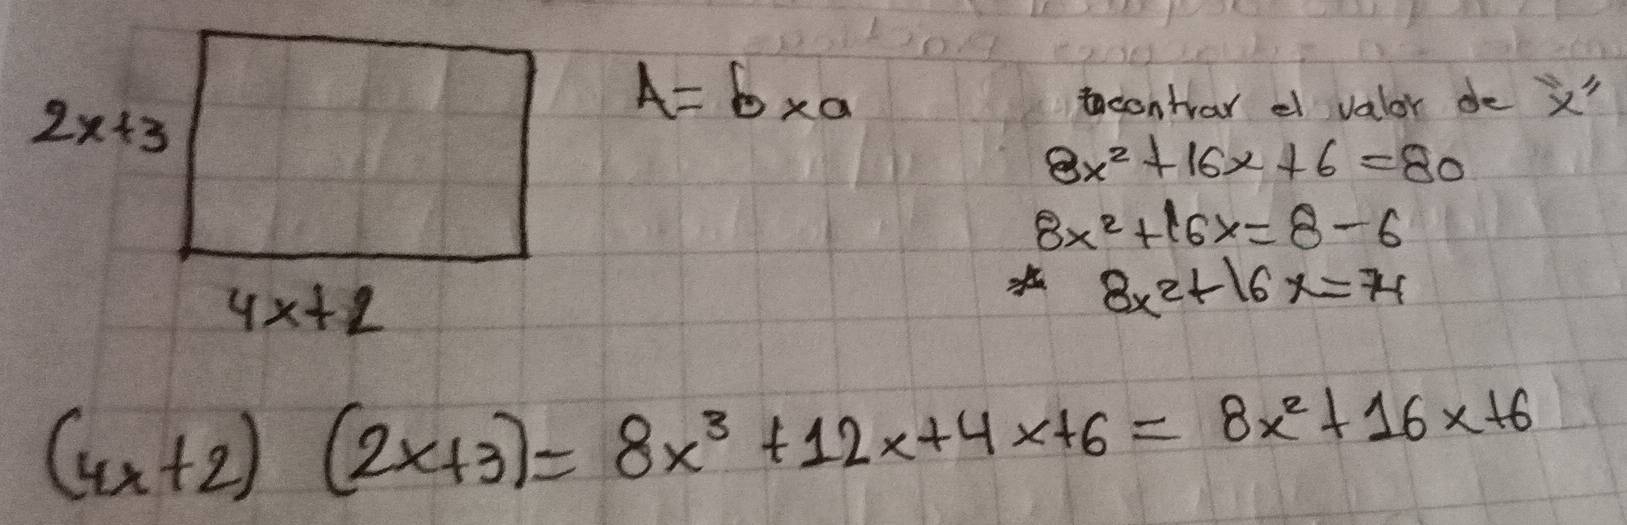 2x+3
4x+2
A = b x a
encontrar el valor de "x"
8x² + 16x + 6 = 80
8x² + 16x = 8 - 6
* 8x² + 16x = 74
(4x+2) (2x+3) = 8x³ + 12x + 4x + 6 = 8x² + 16x + 6